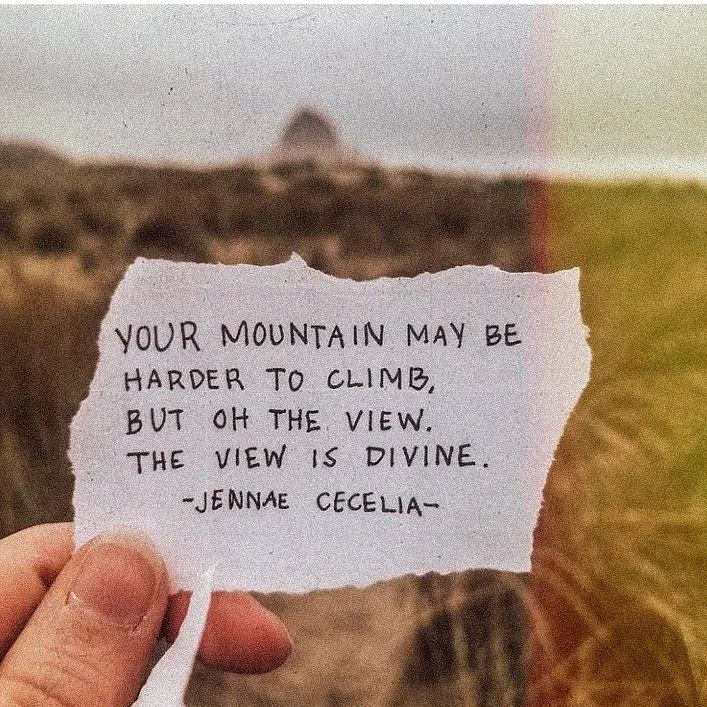 YOUR MOUNTAIN MAY BE
HARDER TO CLIMB,
BUT OH THE VIEW.
THE VIEW IS DIVINE.
-JENNAE CECELIA-